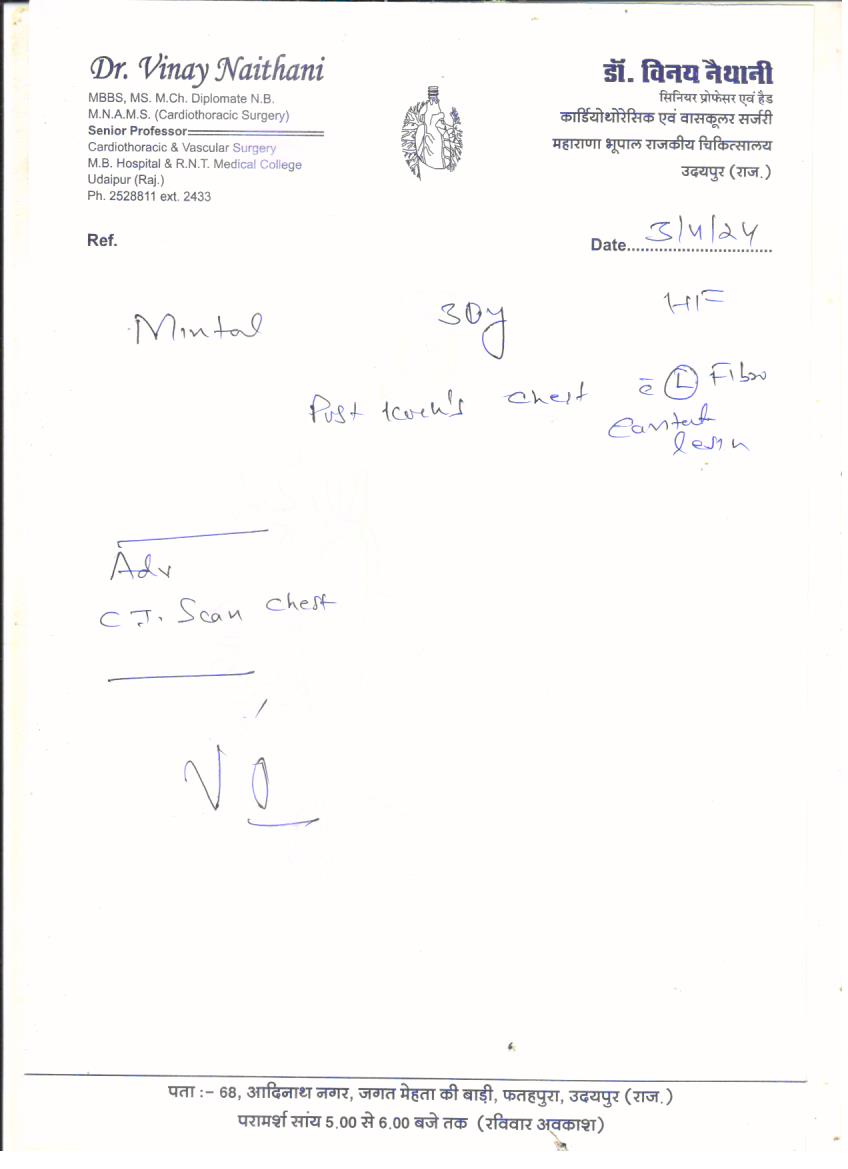 Dr. Vinay Naithani
MBBS, MS. M.Ch. Diplomate N.B.
M.N.A.M.S. (Cardiothoracic Surgery)
Senior Professor
Cardiothoracic & Vascular Surgery
M.B. Hospital & R.N.T. Medical College
Udaipur (Raj.)
Ph. 2528811 ext. 2433
डॉ. विनय नैथानी
सिनियर प्रोफेसर एवं हैड
कार्डियोथोरेसिक एवं वासकूलर सर्जरी
महाराणा भूपाल राजकीय चिकित्सालय
उदयपुर (राज.)
Ref.
Date 3/4/24
30y
Post Koch's Chest c̄ Ⓛ Fibro
Adv
C.T. Scan Chest
पता :– 68, आदिनाथ नगर, जगत मेहता की बाड़ी, फतहपुरा, उदयपुर (राज.)
परामर्श सांय 5.00 से 6.00 बजे तक (रविवार अवकाश)